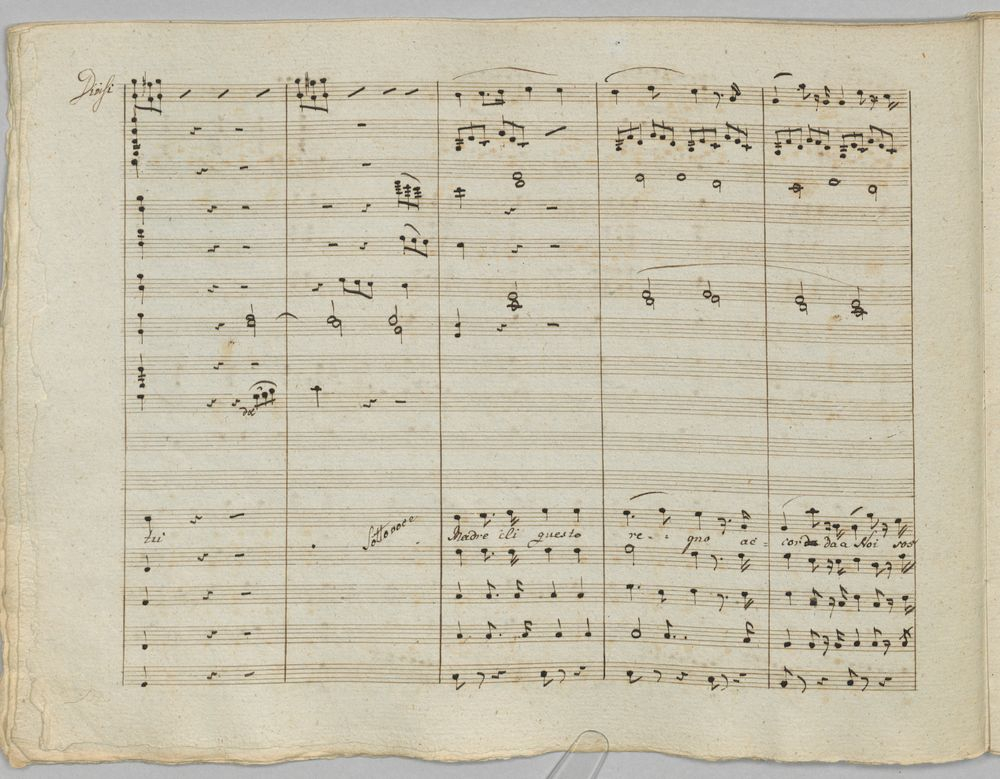 Divisi
dol
tui
Sotto voce
Madre di questo re - - gno ac - corda a Noi soc